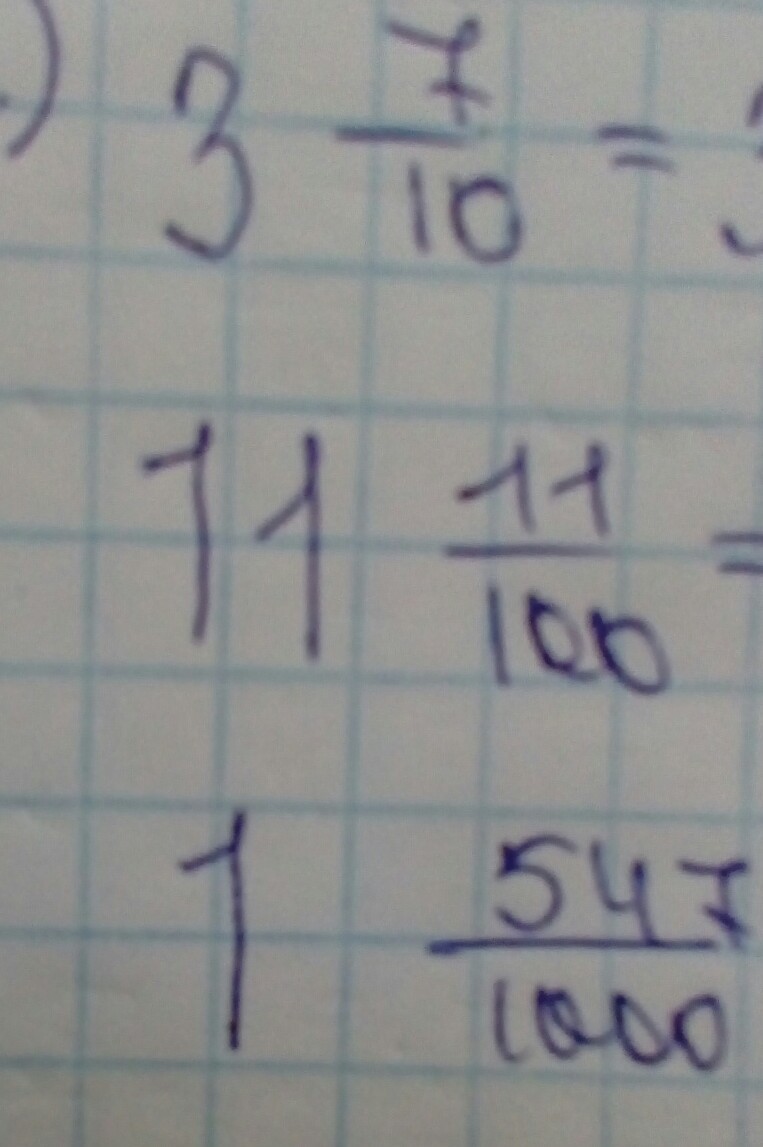 ) 3 7/10 =
11 11/100 =
1 547/1000